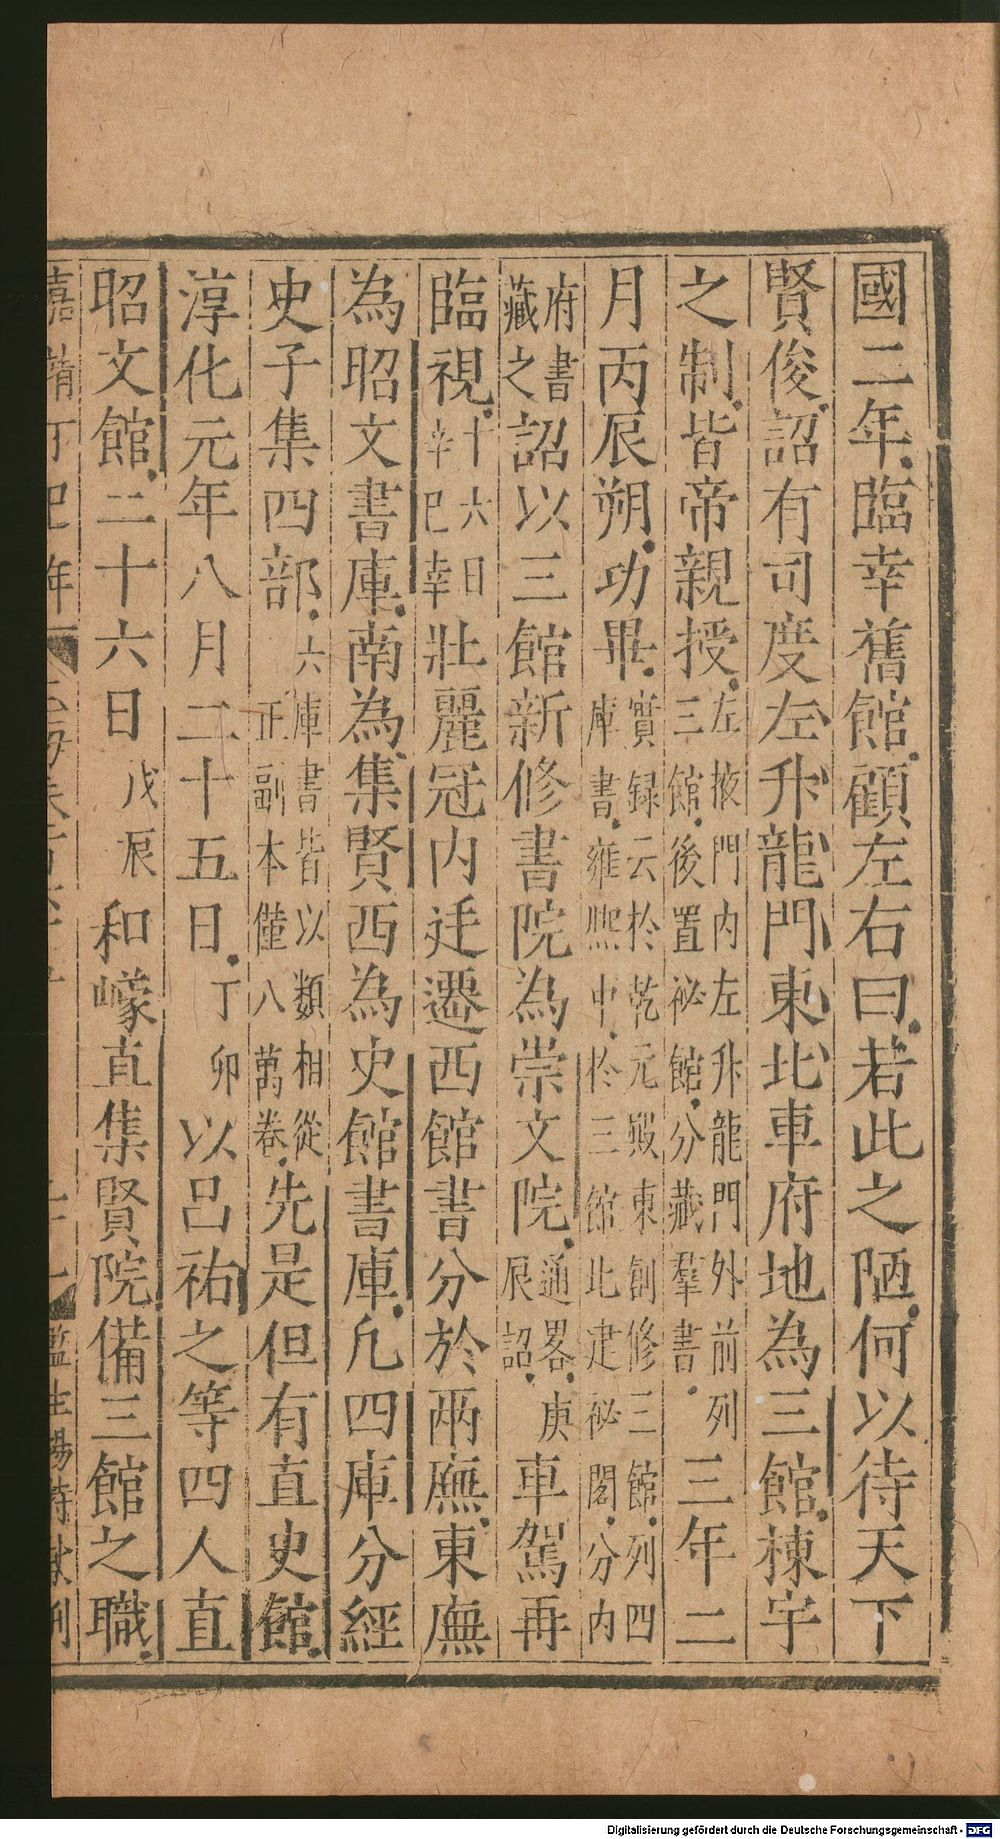 國二年臨幸舊館顧左右曰若此之陋何以待天下
賢俊詔有司度左升龍門東北車府地為三館棟宇
之制皆帝親授左掖門內左升龍門外前列三館後置祕館分藏羣書三年二
月丙辰朔功畢實録云於乾元殿東創修三館列四庫書雍熙中於三館北建祕閣分內
府書藏之詔以三館新修書院為崇文院通畧庚辰詔車駕再
臨視十六日辛巳幸壯麗冠內廷遷西館書分於兩廡東廡
為昭文書庫南為集賢西為史館書庫凡四庫分經
史子集四部六庫書皆以類相從正副本僅八萬卷先是但有直史館
淳化元年八月二十五日丁卯以呂祐之等四人直
昭文館二十六日戊辰和㠓直集賢院備三館之職
嘉靖丁巳年
監生楊
Digitalisierung gefördert durch die Deutsche Forschungsgemeinschaft - DFG